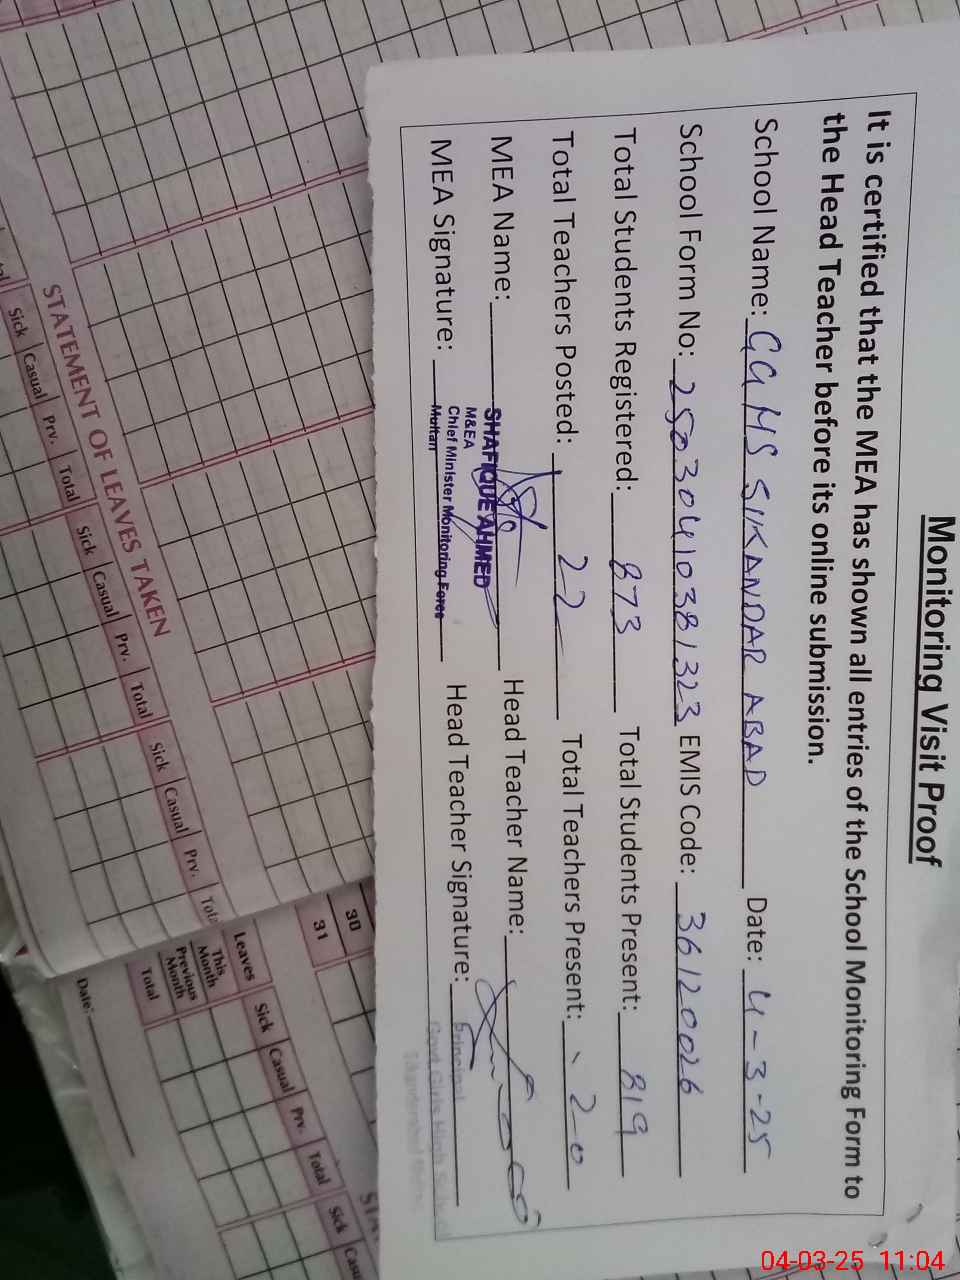 Monitoring Visit Proof
It is certified that the MEA has shown all entries of the School Monitoring Form to
the Head Teacher before its online submission.
School Name: GGHS SIKANDAR ABAD Date: 4-3-25
School Form No: 25030410381323 EMIS Code: 36120026
Total Students Registered: 873 Total Students Present: 819
Total Teachers Posted: 22 Total Teachers Present: 20
MEA Name: SHAFIQUE AHMED Head Teacher Name:
M&EA
Chief Minister Monitoring Force
Multan
MEA Signature: Head Teacher Signature:
Principal
Govt. Girls High School
STATEMENT OF LEAVES TAKEN
Sick Casual Prv. Total Sick Casual Prv. Total Sick Casual Prv.
30
31
Leaves Sick Casual Prv. Total Sick
This Month
Previous Month
Total
Date:
04-03-25 11:04